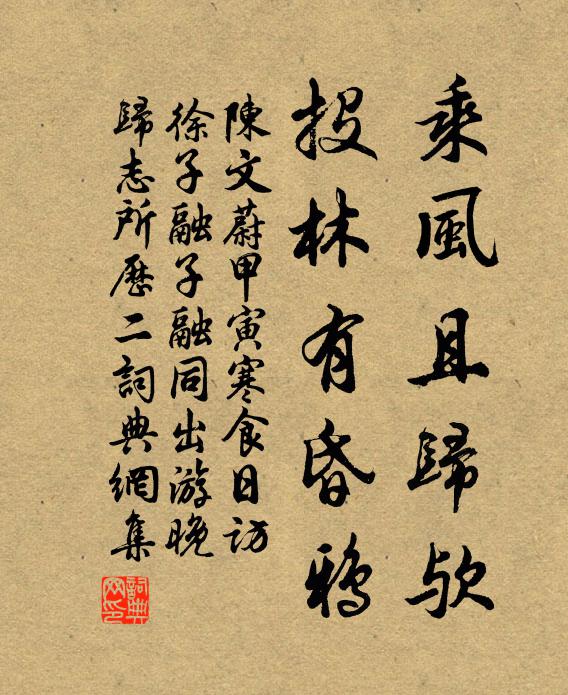 乘風且歸欤
投林有昏鴉
陳文蔚甲寅寒食日訪
徐子融子融同出游晚
歸志所歷二詞典網集
詞典网印